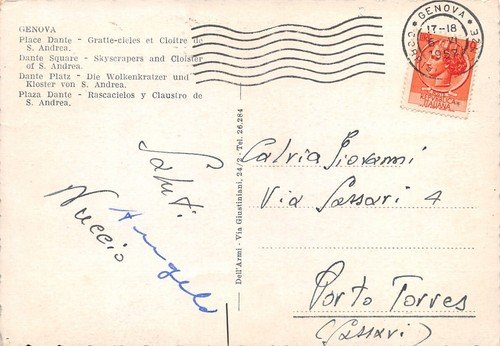 GENOVA
Place Dante - Gratte-cieles et Cloître de
S. Andrea.
Dante Square - Skyscrapers and Cloister
of S. Andrea.
Dante Platz - Die Wolkenkratzer und
Kloster von S. Andrea.
Plaza Dante - Rascacielos y Claustro de
S. Andrea.
Saluti
Nuccio
Angelo
Dell'Armi - Via Giustiniani, 24/2 - Tel. 26.284
GENOVA
17-18
Salvia Giovanni
Via Sassari 4
Porto Torres
(Sassari)